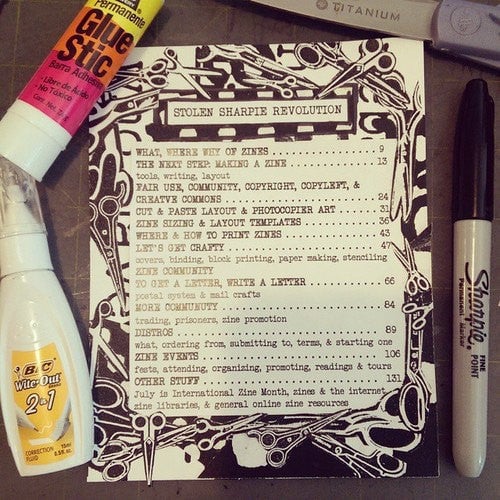 Permanente
Glue
Stic
Barra Adhesiva
- Libre de Ácido
- No Tóxico
TITANIUM
STOLEN SHARPIE REVOLUTION
WHAT, WHERE WHY OF ZINES 9
THE NEXT STEP: MAKING A ZINE 13
tools, writing, layout
FAIR USE, COMMUNITY, COPYRIGHT, COPYLEFT, &
CREATIVE COMMONS 24
CUT & PASTE LAYOUT & PHOTOCOPIER ART 31
ZINE SIZING & LAYOUT TEMPLATES 36
WHERE & HOW TO PRINT ZINES 43
LET'S GET CRAFTY 47
covers, binding, block printing, paper making, stenciling
ZINE COMMUNITY
TO GET A LETTER, WRITE A LETTER 66
postal system & mail crafts
MORE COMMUNITY 84
trading, prisoners, zine promotion
DISTROS 89
what, ordering from, submitting to, terms, & starting one
ZINE EVENTS 106
fests, attending, organizing, promoting, readings & tours
OTHER STUFF 131
July is International Zine Month, zines & the internet
zine libraries, & general online zine resources
Sharpie
FINE
POINT
Permanent Marker
BIC
Wite-Out
2 in 1
CORRECTION
FLUID